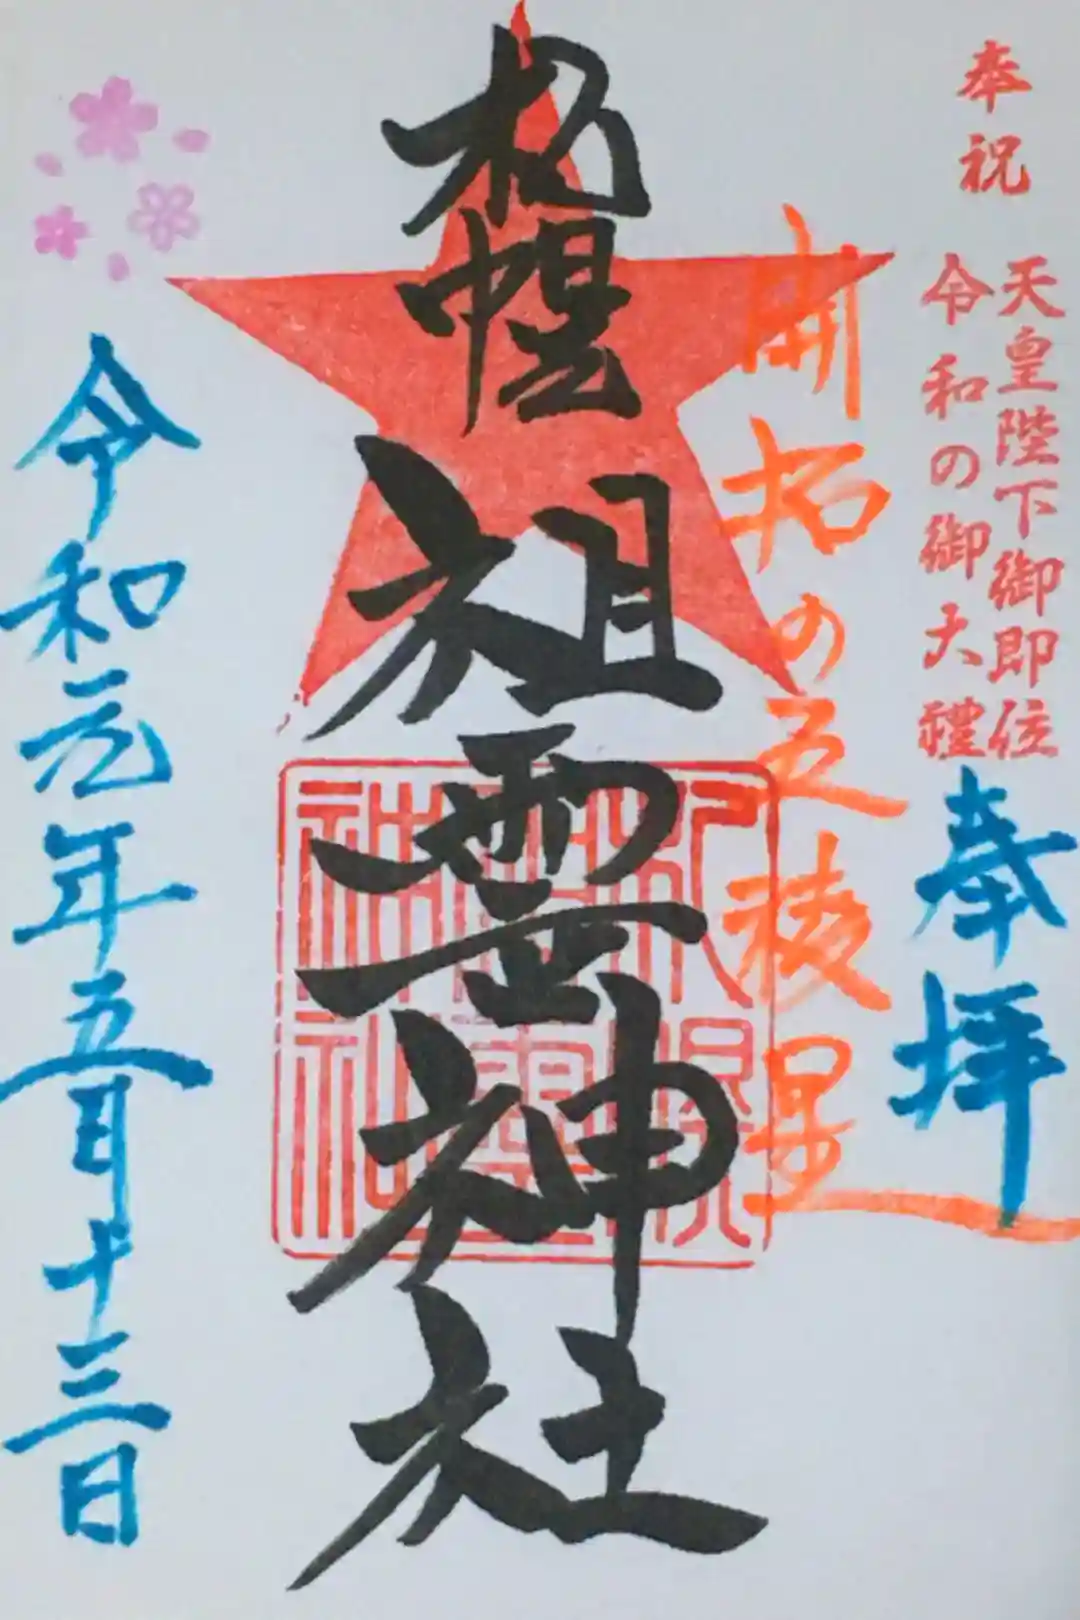 奉祝
天皇陛下御即位
令和の御大禮
奉拝
開拓の五稜星
札幌祖霊神社
令和元年五月十三日